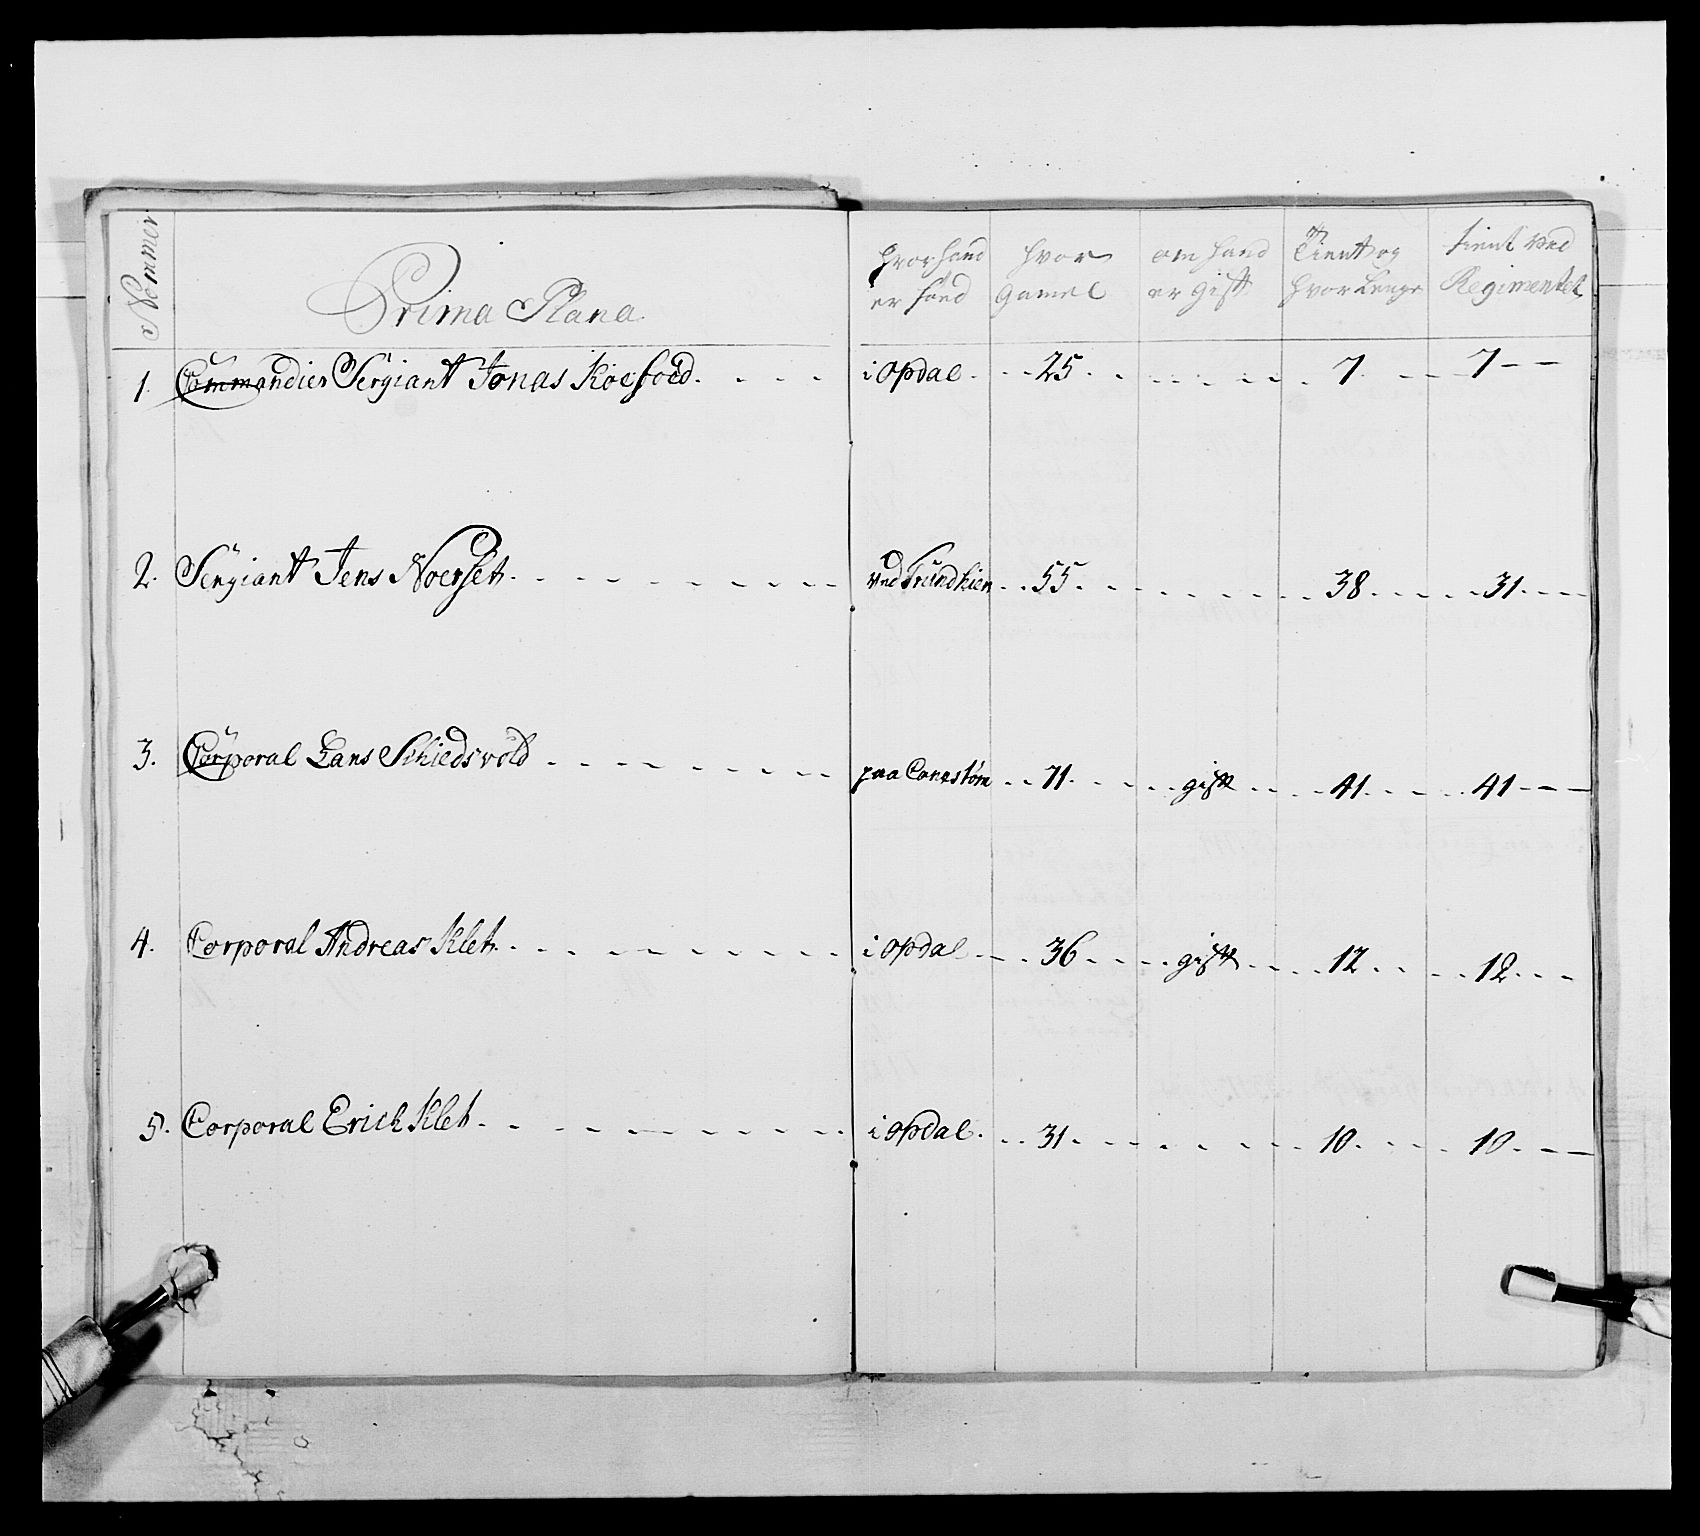 Nommer
Prima Plana
hvor hand er føed
hvor Gamel
om hand er gift
Tient og hvor Lenge
tient ved Regimentet
1. Commandier Sergiant Jonas Koefoed. i Opdal. 25. 7. 7
2. Sergiant Jens Noerset. ved Trundhiem 55. 38. 31.
3. Corporal Lars Schiedsvold paa 71. gift 41. 41
4. Corporal Andreas Klet. i Opdal 36. gift 12. 12.
5. Corporal Erich Klet. i Opdal. 31. 10. 10.